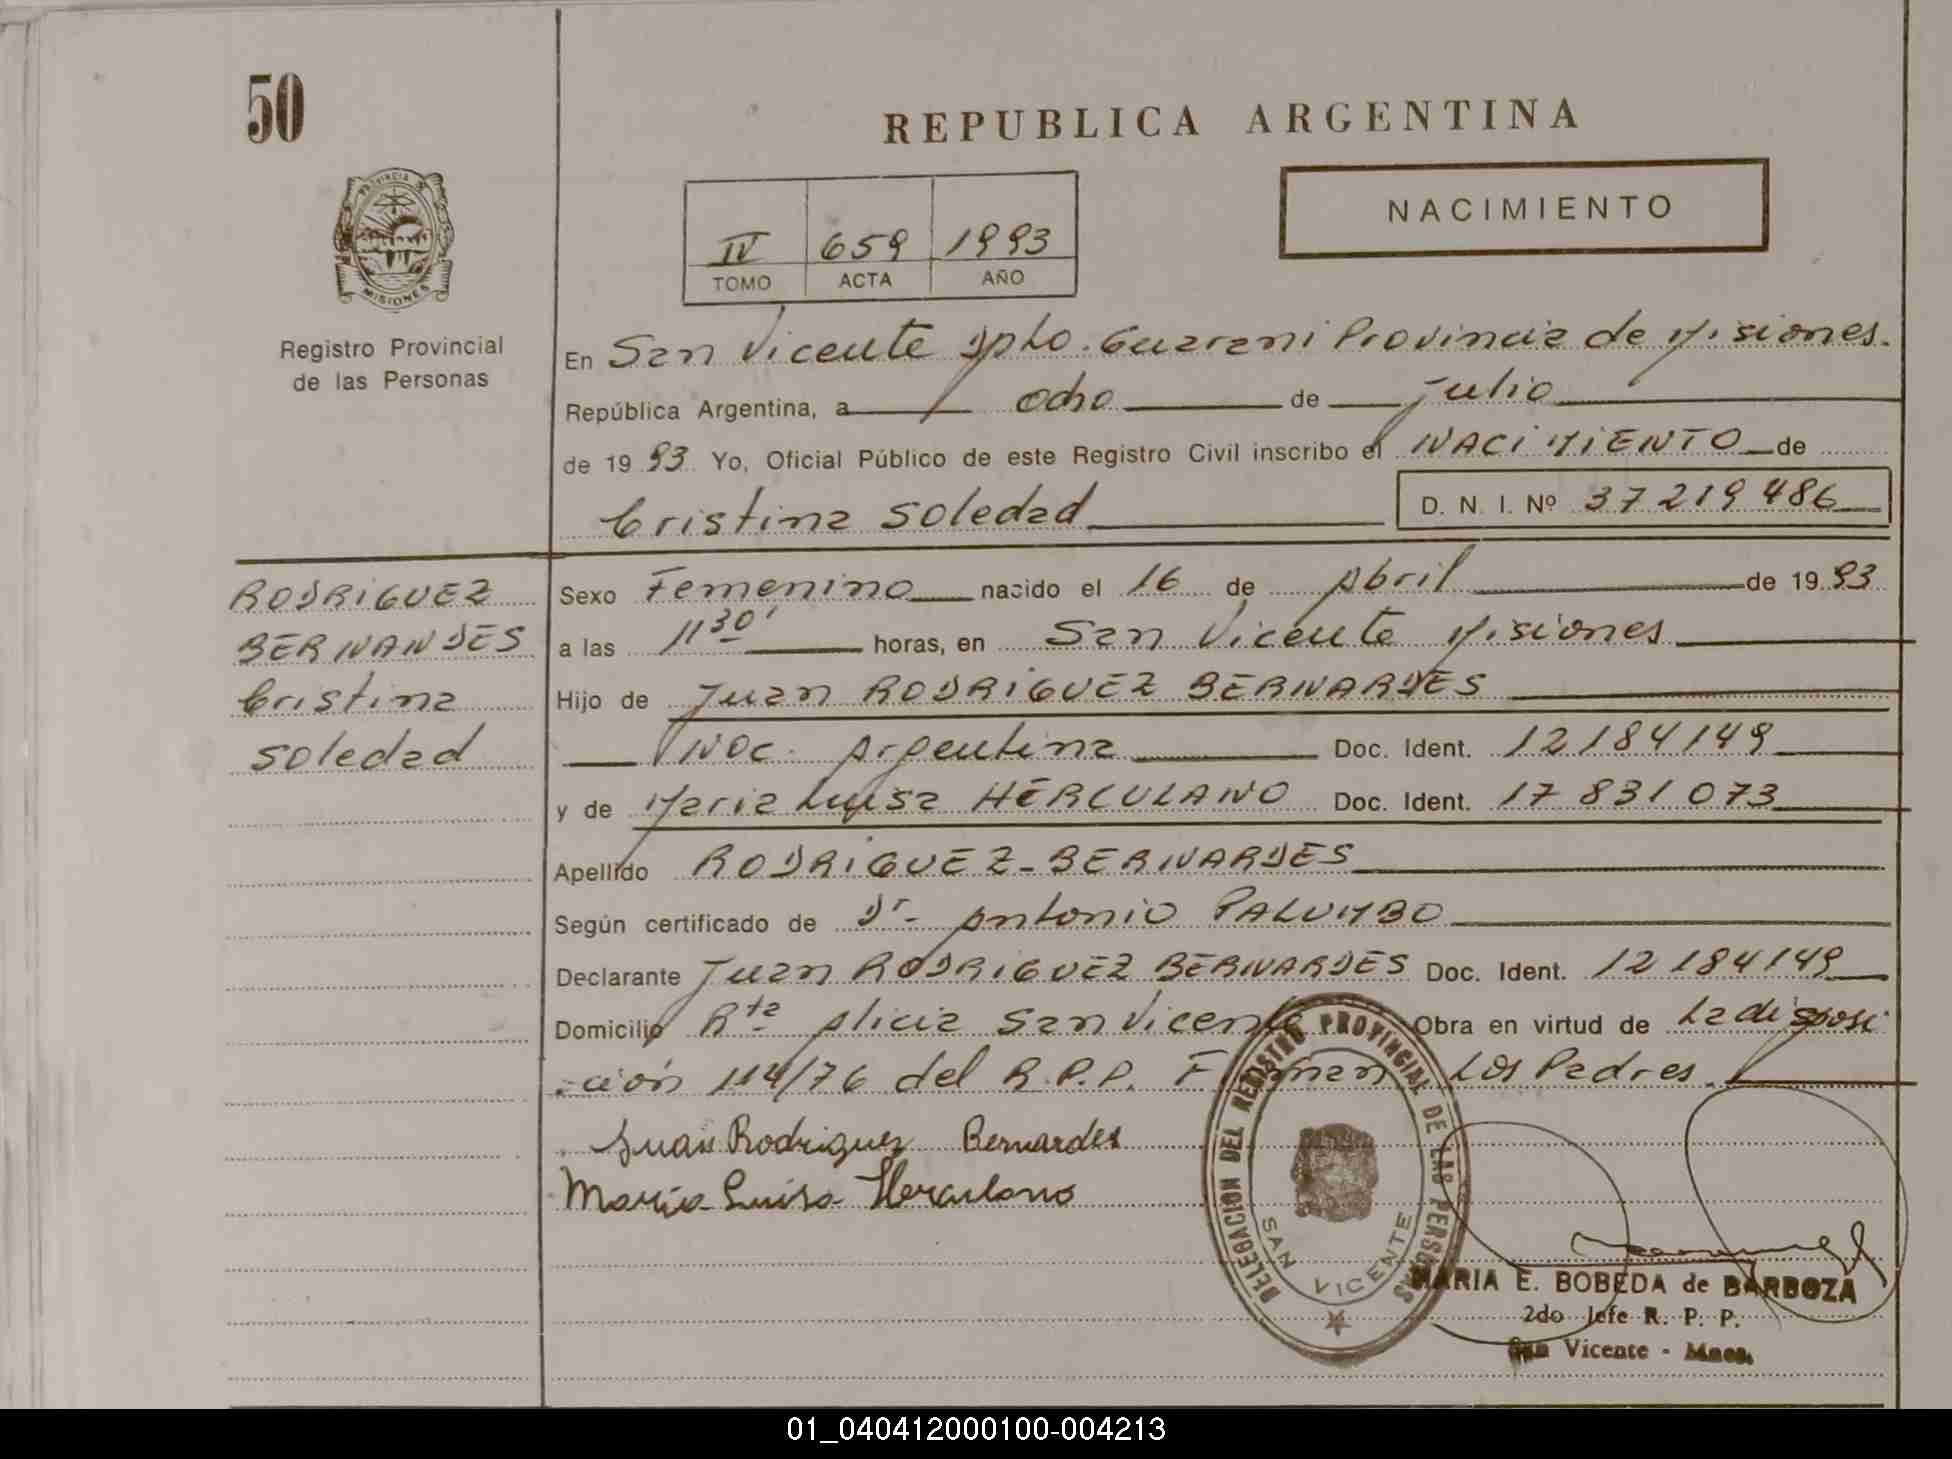 50
REPUBLICA ARGENTINA
NACIMIENTO
IV 659 1993
TOMO ACTA AÑO
PROVINCIA DE
MISIONES
Registro Provincial
de las Personas
En San Vicente Dpto. Guarani Provincia de Misiones.
República Argentina, a ocho de Julio
de 1993 Yo, Oficial Público de este Registro Civil inscribo el NACIMIENTO de
Cristina Soledad D. N. I. Nº 37 219 486
RODRIGUEZ
BERNANDES
Cristina
Soledad
Sexo Femenino nacido el 16 de Abril de 1993
a las 11 30' horas, en San Vicente Misiones
Hijo de Juan RODRIGUEZ BERNARDES
Nac. Argentina Doc. Ident. 12 184 149
y de Maria Luisa HERCULANO Doc. Ident. 17 831 073
Apellido RODRIGUEZ-BERNARDES
Según certificado de Dr. Antonio PALUMBO
Declarante Juan RODRIGUEZ BERNARDES Doc. Ident. 12 184 149
Domicilio Rta Alicia San Vicente Obra en virtud de La disposi
ción 114/76 del R.P.P. Firman Los Padres.
Juan Rodriguez Bernardes
Maria Luisa Herculano
DELEGACION DEL REGISTRO PROVINCIAL DE LAS PERSONAS
SAN VICENTE
MARIA E. BOBEDA de BARBOZA
2do Jefe R. P. P.
San Vicente - Mnes.
01_040412000100-004213